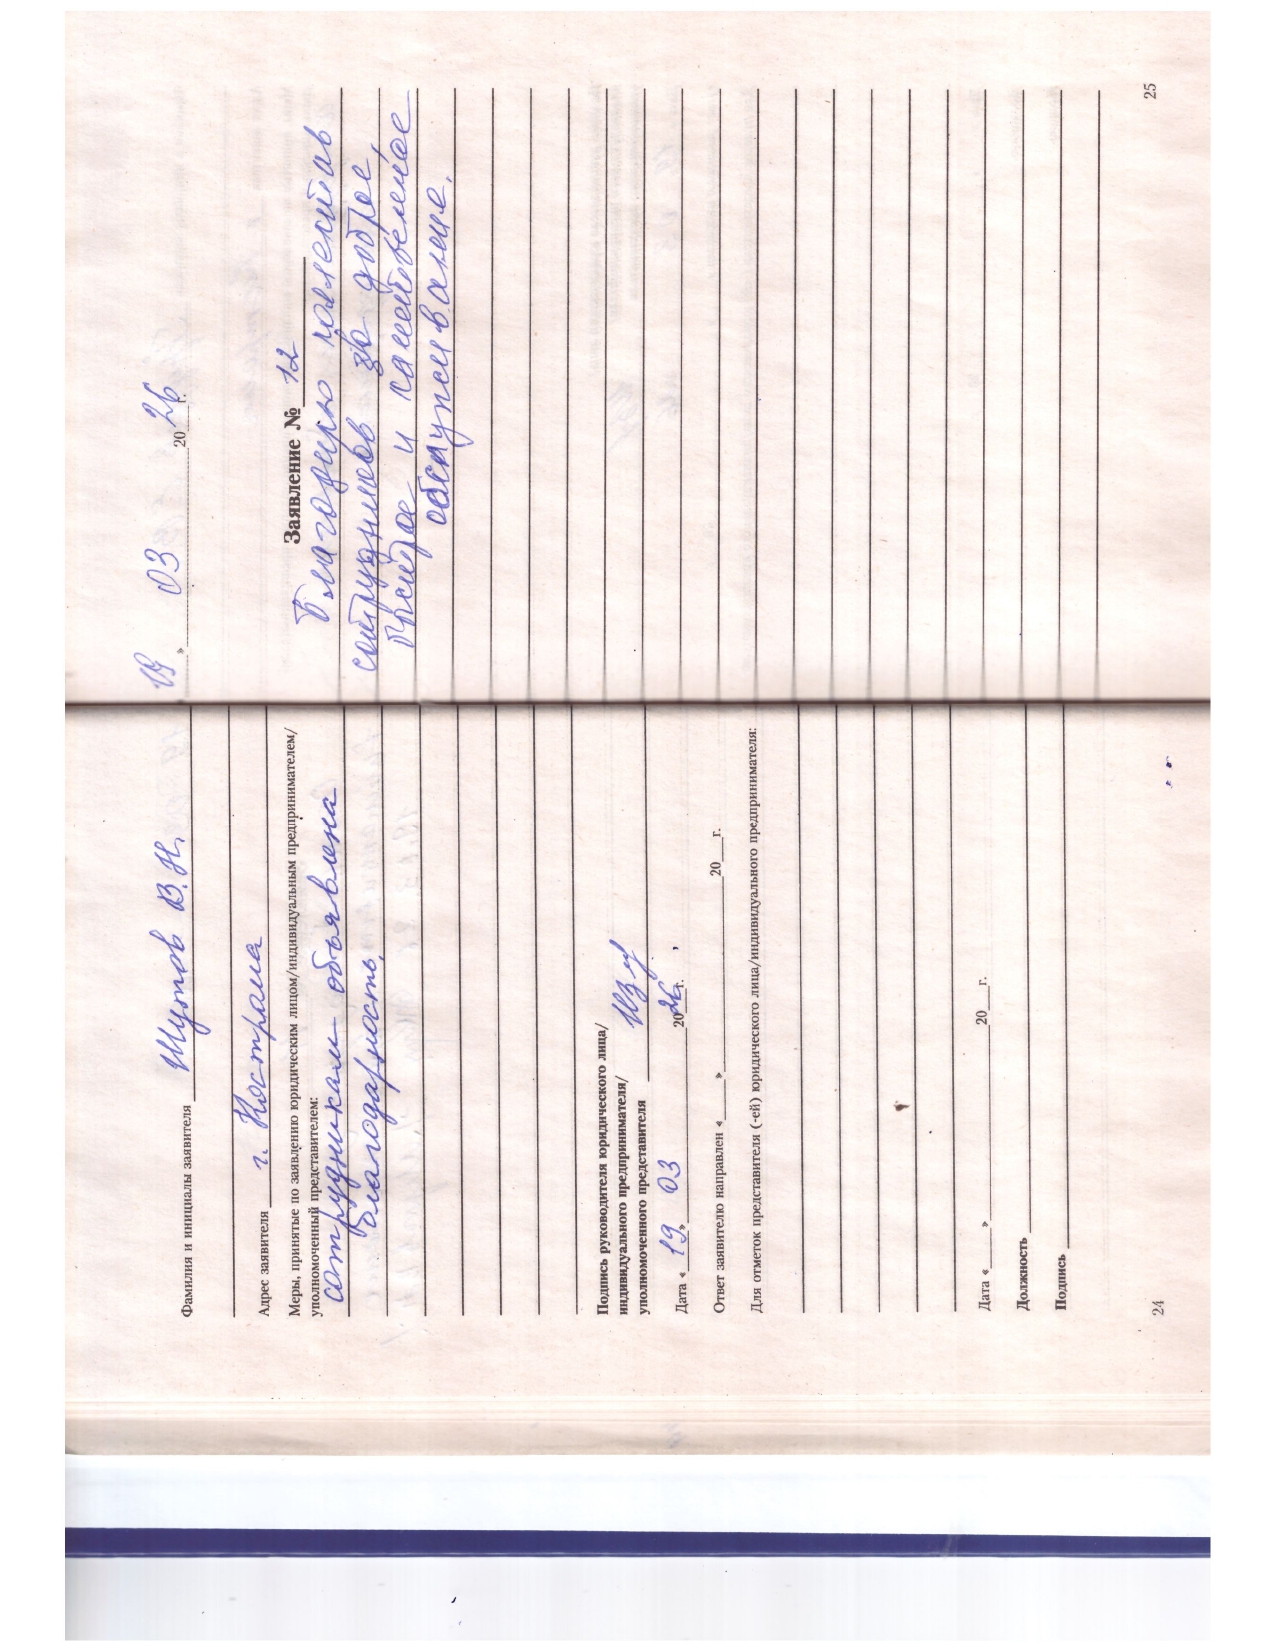 Фамилия и инициалы заявителя Шутов В.Н.
Адрес заявителя г. Кострома
Меры, принятые по заявлению юридическим лицом/индивидуальным предпринимателем/
уполномоченный представителем:
сотрудникам объявлена
благодарность.
Подпись руководителя юридического лица/
индивидуального предпринимателя/
уполномоченного представителя
Дата « 19 » 03 2026 г.
Ответ заявителю направлен «___» ___ 20__г.
Для отметок представителя (-ей) юридического лица/индивидуального предпринимателя:
Дата «___» ___ 20__г.
Должность
Подпись
24
19 » 03 2026 г.
Заявление № 12
Благодарю коллектив
сотрудников за доброе,
быстрое и качественное
обслуживание.
25